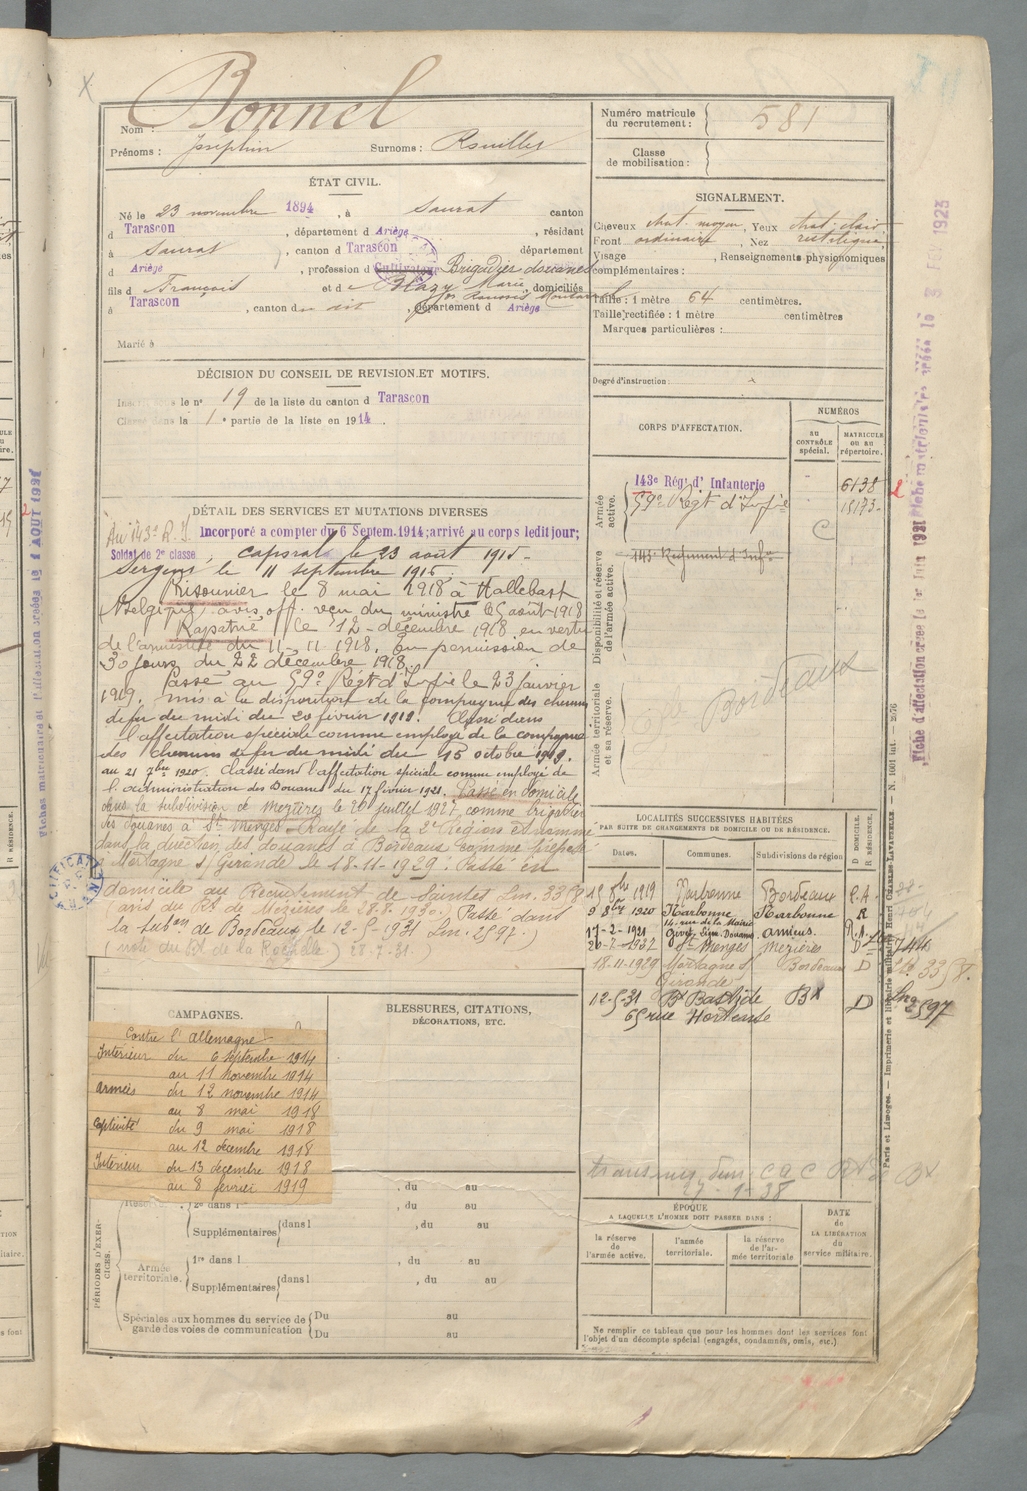 Bonnel
Nom :
Prénoms : Joséphin Surnoms : Rouillet
Numéro matricule du recrutement : 581
Classe de mobilisation :
ÉTAT CIVIL.
Né le 23 novembre 1894, à Saurat canton
d Tarascon, département d Ariège, résidant
à Saurat, canton d Tarascon département
d Ariège, profession d Cultivateur Brigadier douanes
fils d François et de Blazy Marie, domiciliés
à Tarascon, canton du dit, département d Ariège
Marié à
SIGNALEMENT.
Cheveux chat. moyen, Yeux chat. clair
Front ordinaire, Nez rectiligne
Visage , Renseignements physionomiques
complémentaires :
Taille : 1 mètre 64 centimètres.
Taille rectifiée : 1 mètre centimètres
Marques particulières :
Degré d'instruction :
DÉCISION DU CONSEIL DE REVISION ET MOTIFS.
Inscrit sous le n° 19 de la liste du canton d Tarascon
Classé dans la 1e partie de la liste en 1914.
CORPS D'AFFECTATION.
NUMÉROS
AU CONTRÔLE spécial.
MATRICULE ou au répertoire.
Armée active.
143e Régt d'Infanterie 6138
59e Régt d'Infie 15173
Disponibilité et réserve de l'armée active.
143e Régiment d'Infie
Armée territoriale et sa réserve.
Bordeaux
DÉTAIL DES SERVICES ET MUTATIONS DIVERSES
Au 143e R.I. Incorporé a compter du 6 Septem. 1914; arrivé au corps ledit jour;
Soldat de 2e classe ; caporal le 23 août 1915.
Sergent le 11 septembre 1916.
Prisonnier le 8 mai 1918 à Hallebast
(Belgique) avis off. reçu du ministre le 5 août 1918
Rapatrié le 12 décembre 1918 en vertu
de l'armistice du 11-11-1918. En permission de
30 jours du 22 décembre 1918.
Passé au 59e Régt d'Infie le 23 janvier
1919. mis à la disposition de la compagnie des chemins
de fer du midi du 20 février 1919. Classé dans
l'affectation spéciale comme employé de la compagnie
des chemins de fer du midi du 15 octobre 1919.
au 21 7bre 1920. Classé dans l'affectation spéciale comme employé de
l'administration des Douanes du 17 février 1921. Passé en domicile
dans la subdivision de Mezières le 26 juillet 1927 comme brigadier
des douanes à St Menges. Rayé de la 2e Région et nommé
dans la direction des douanes à Bordeaux comme préposé
à Mortagne s/ Gironde le 18-11-1929. Passé en
domicile au Recrutement de Saintes Lm. 3358
(avis du Rt de Mezières le 28.8.1930.) Passé dans
la subon de Bordeaux le 12-5-1931 Lm. 2597.)
(note du Rt de la Rochelle) 28-7-31.
LOCALITÉS SUCCESSIVES HABITÉES
PAR SUITE DE CHANGEMENTS DE DOMICILE OU DE RÉSIDENCE.
Dates. Communes. Subdivisions de région
D DOMICILE. R RÉSIDENCE.
15 8bre 1919 Narbonne Bordeaux
9 8bre 1920 Narbonne Narbonne R
16 rue de la Mairie
17-2-1921 Givet, Lieut. Douanes Amiens
26-7-1927 St Menges Mezières D 744
18-11-1929 Mortagne s/ Gironde Bordeaux D 3358.
12-5-31 Bx Bastide Bx D 2597
65 rue Hortense
CAMPAGNES.
Contre l'Allemagne
Intérieur du 6 septembre 1914
au 11 novembre 1914
Armées du 12 novembre 1914
au 8 mai 1918
Captivité du 9 mai 1918
au 12 décembre 1918
Intérieur du 13 décembre 1918
au 8 février 1919
BLESSURES, CITATIONS, DÉCORATIONS, ETC.
PÉRIODES D'EXERCICES.
, du au
2e dans l , du au
Supplémentaires dans l , du au
Armée territoriale.
1re dans l , du au
Supplémentaires dans l , du au
Spéciales aux hommes du service de garde des voies de communication
Du au
Du au
27-1-38
ÉPOQUE
A LAQUELLE L'HOMME DOIT PASSER DANS :
la réserve de l'armée active.
l'armée territoriale.
la réserve de l'armée territoriale
DATE de LA LIBÉRATION du service militaire.
Ne remplir ce tableau que pour les hommes dont les services font
l'objet d'un décompte spécial (engagés, condamnés, omis, etc.)
Paris et Limoges. — Imprimerie et librairie militaires Henri CHARLES-LAVAUZELLE — N. 1001 int. — 2076